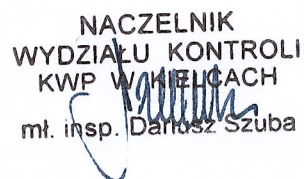 NACZELNIK
WYDZIAŁU KONTROLI
KWP W KIELCACH
mł. insp. Dariusz Szuba